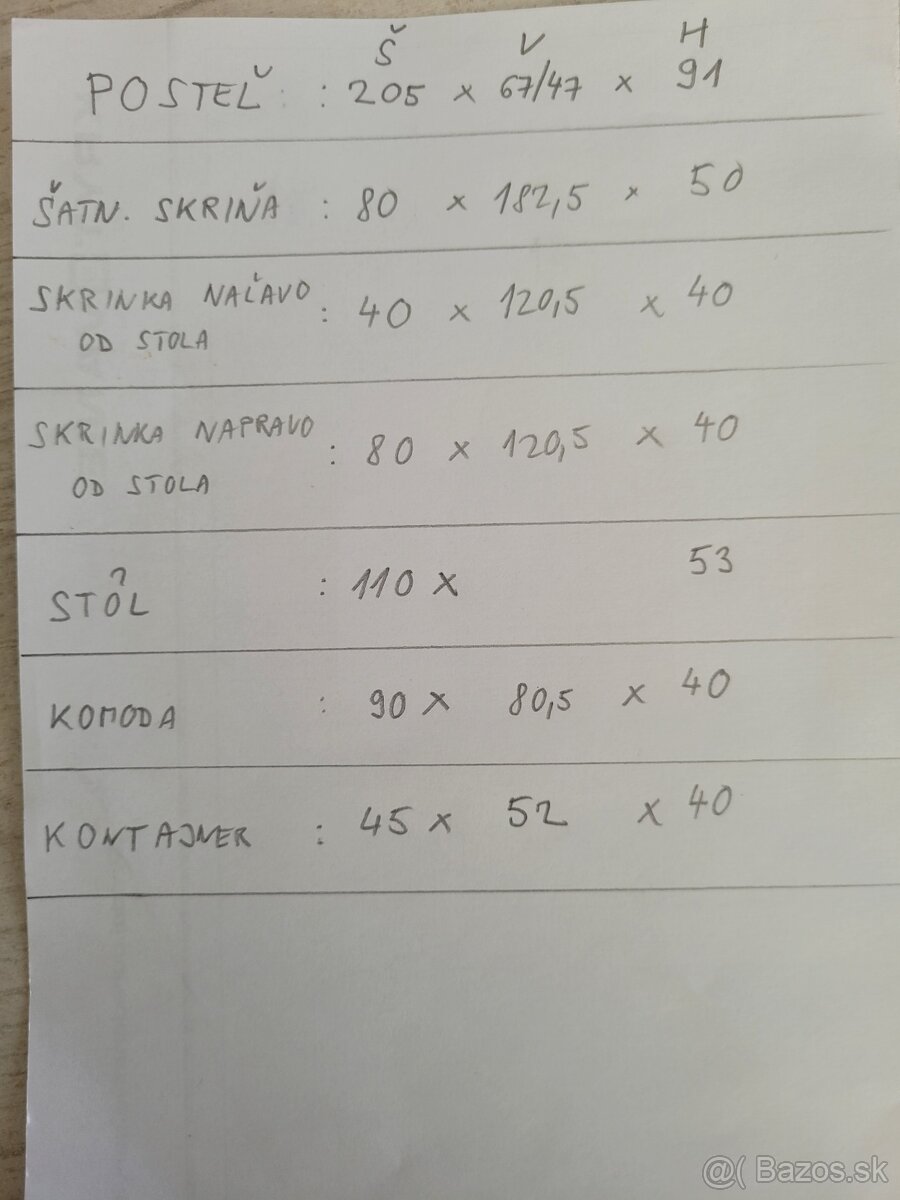 Š V H
POSTEĽ : 205 x 67/47 x 91
ŠATN. SKRIŇA : 80 x 182,5 x 50
SKRINKA NAĽAVO : 40 x 120,5 x 40
OD STOLA
SKRINKA NAPRAVO : 80 x 120,5 x 40
OD STOLA
STÔL : 110 x 53
KOMODA : 90 x 80,5 x 40
KONTAJNER : 45 x 52 x 40
@( Bazos.sk